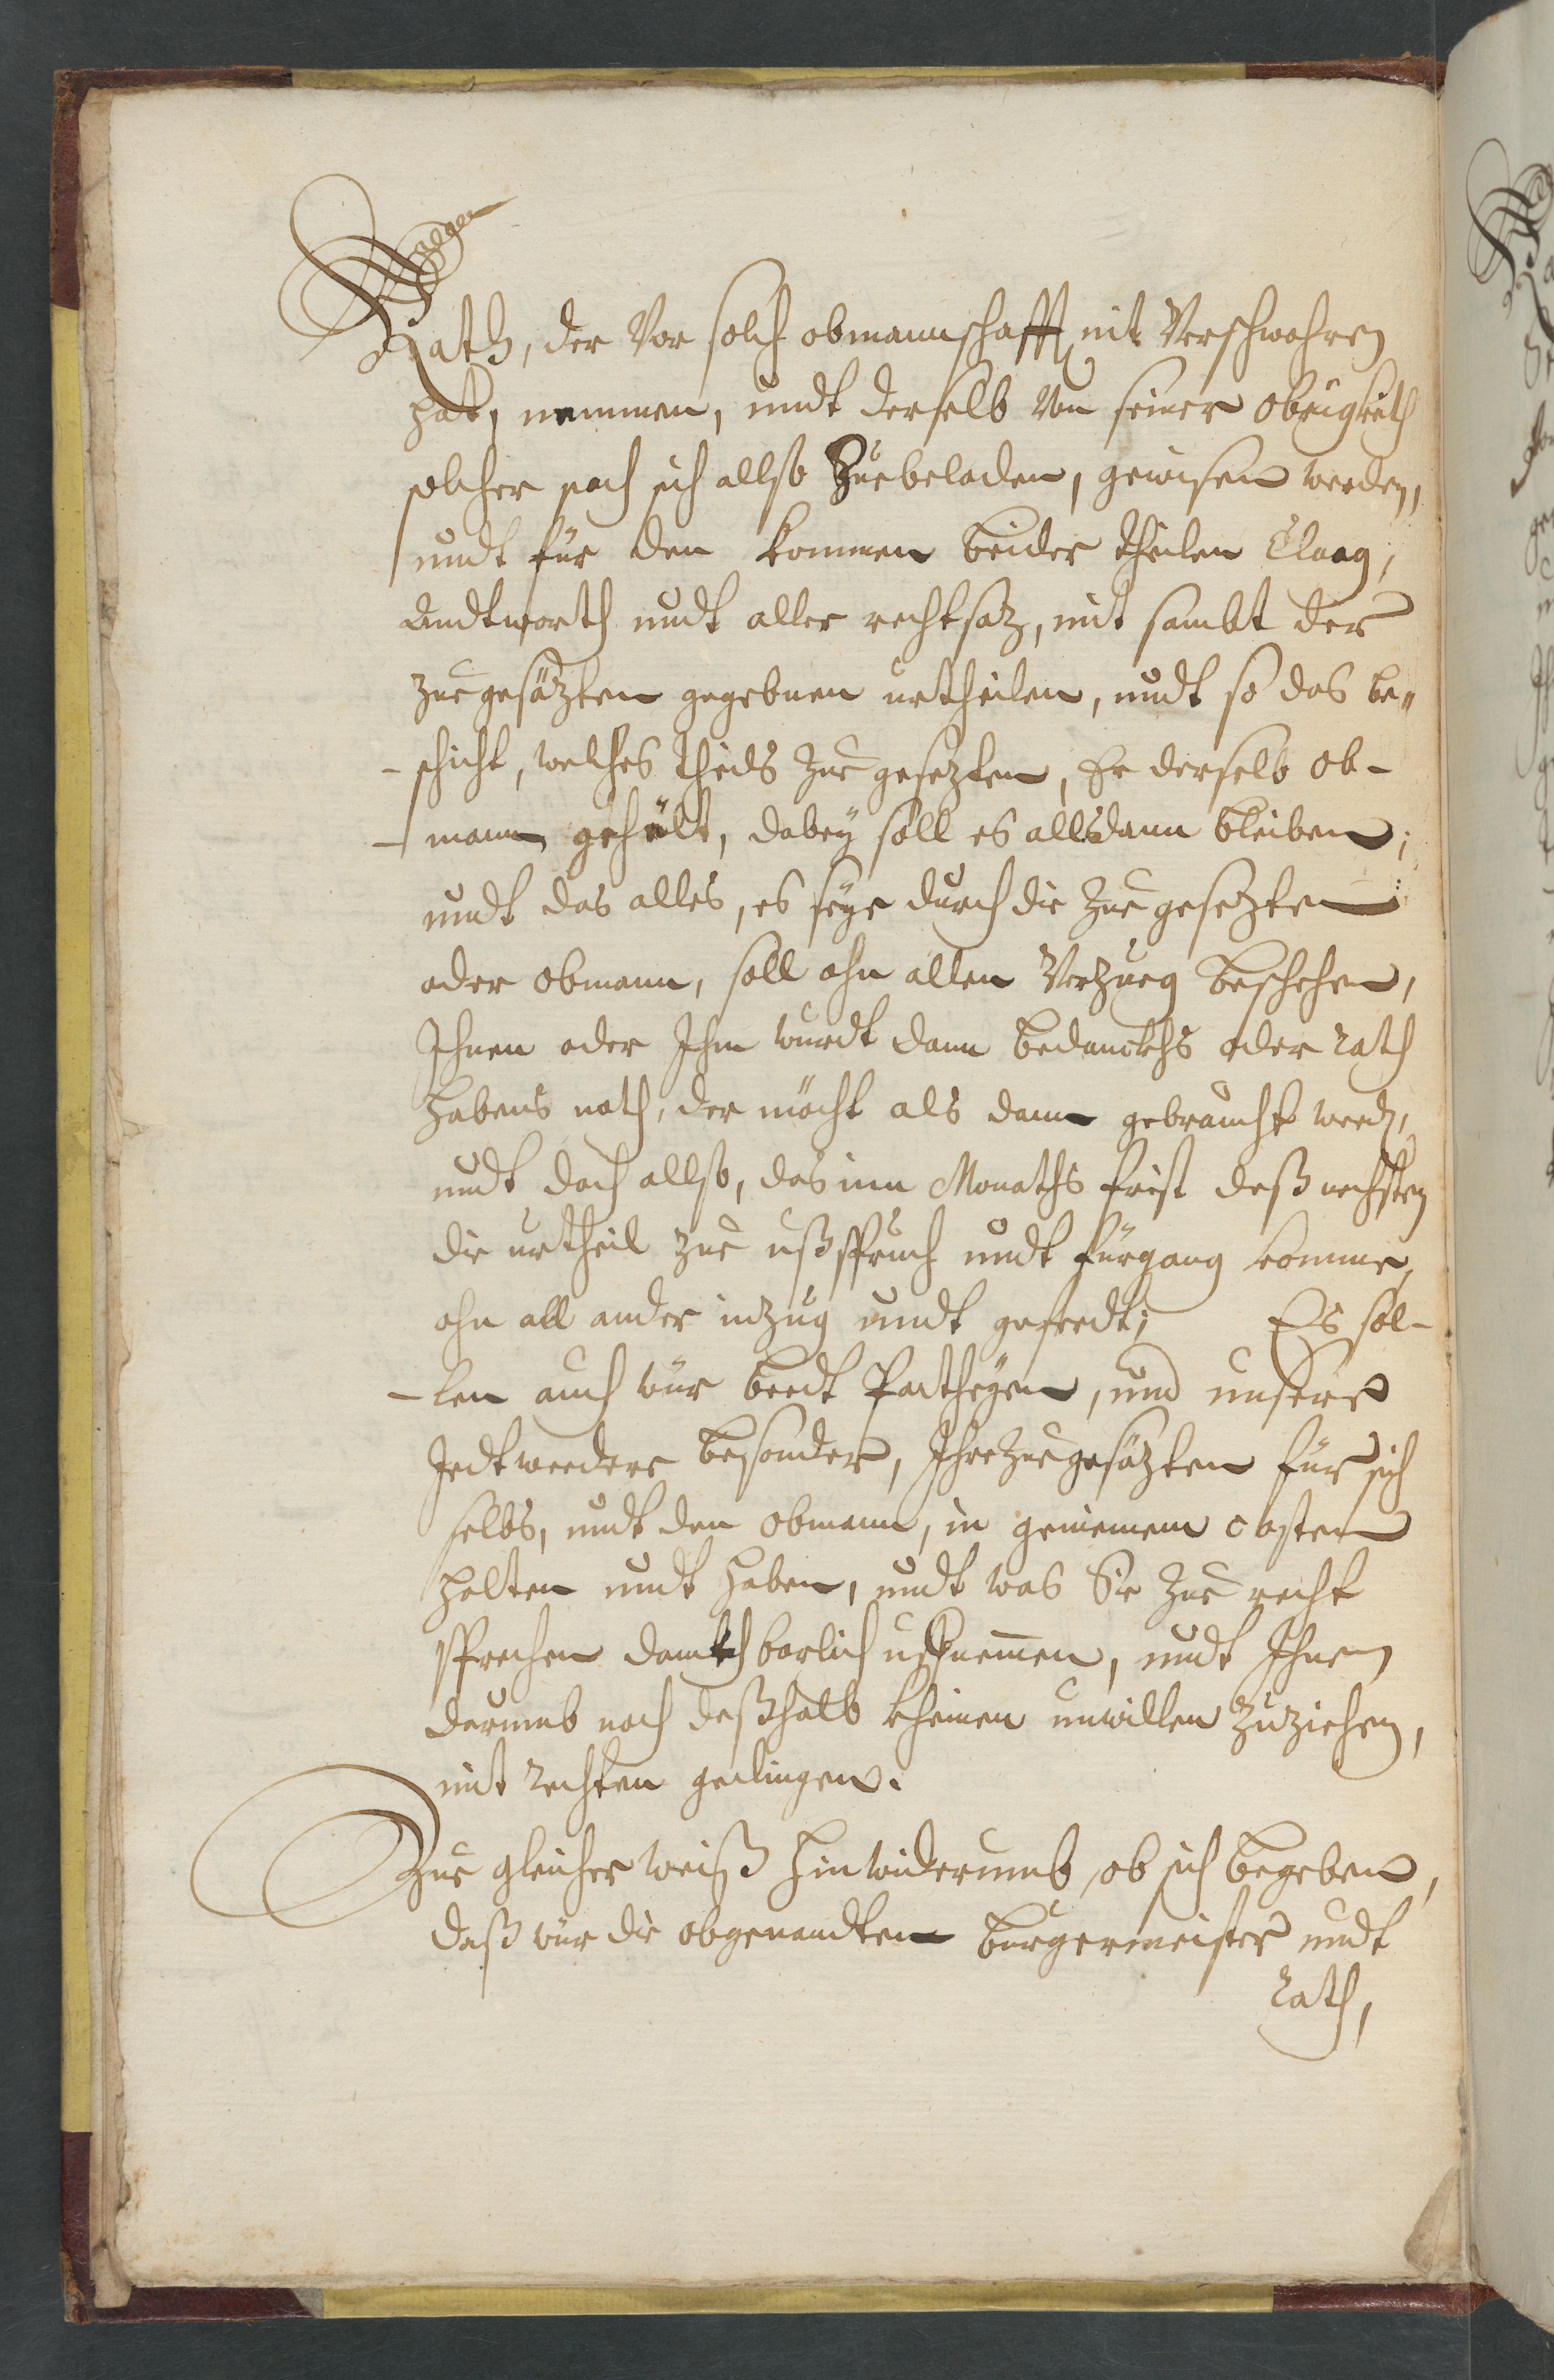 Rath, der Vor solch obmannschafft nit Verschwohren
hat, nemmen, undt derselb Von seiner Obrigkeith
solcher sach sich allso Zuebeladen, gewisen werden,
undt für den kommen beider theilen Claag,
Andtworth undt aller rechtsatz, mit sambt der
zue gesätzten gegebnen urtheilen, undt so das be„
-schicht, welches theils Zue gesezten, Er derselb ob-
-mann gehält, dabey soll es allsdann bleiben;
undt das alles, es seye durch die Zue gesezten
oder obmann, soll ohn allen Verzueg beschehen,
Ihnen oder Ihm wurdt dann bedanckhs oder rath
habens noth, der möcht als dann gebraucht werdn,
undt doch allso, das inn Monaths frist deß nechsten
die urtheil zue ußspruch undt fürgang komme,
ohn all ander inzug undt geferdt; Es sol-
-len auch wür beedt Partheyen, und unsere
Jedtweedere besonder, Ihre Zue gesäzten für sich
selbs, undt den obmann, in gemeinem costen
halten undt haben, undt was Sie Zue recht
sprechen danckhbarlich uffnemmen, undt Ihnen
darumb noch deßhalb kheinen unwillen Zuziehen,
mit rechten gedingen.
Zue gleicher weiß hinwiderumb, ob sich begeben,
daß wür die obgenandten burgermeister undt
rath,